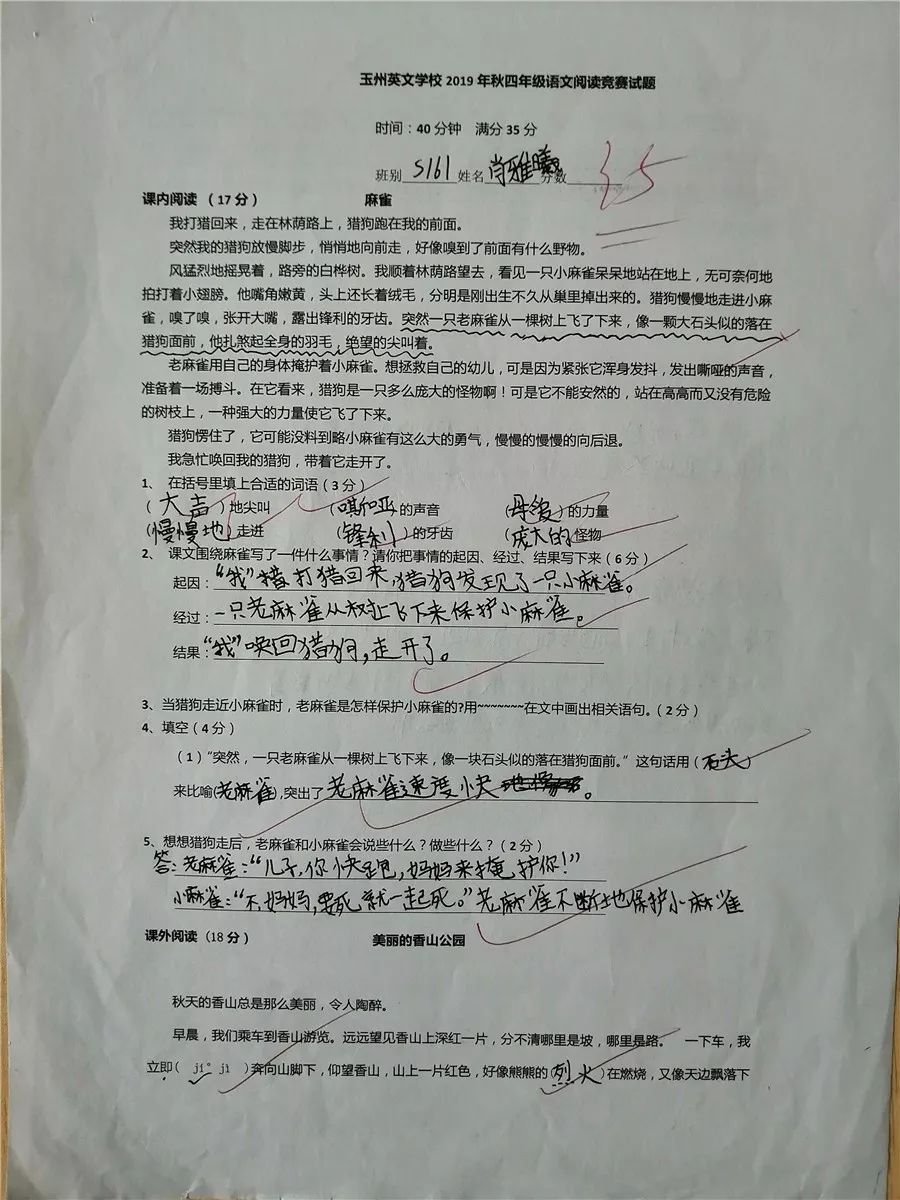 玉州英文学校 2019 年秋四年级语文阅读竞赛试题
时间：40 分钟 满分 35 分
班别 S161 姓名 肖雅曦 分数 35
课内阅读 （17 分） 麻雀
我打猎回来，走在林荫路上，猎狗跑在我的前面。
突然我的猎狗放慢脚步，悄悄地向前走，好像嗅到了前面有什么野物。
风猛烈地摇晃着，路旁的白桦树。我顺着林荫路望去，看见一只小麻雀呆呆地站在地上，无可奈何地
拍打着小翅膀。他嘴角嫩黄，头上还长着绒毛，分明是刚出生不久从巢里掉出来的。猎狗慢慢地走进小麻
雀，嗅了嗅，张开大嘴，露出锋利的牙齿。突然一只老麻雀从一棵树上飞了下来，像一颗大石头似的落在
猎狗面前，他扎煞起全身的羽毛，绝望的尖叫着。
老麻雀用自己的身体掩护着小麻雀。想拯救自己的幼儿，可是因为紧张它浑身发抖，发出嘶哑的声音，
准备着一场搏斗。在它看来，猎狗是一只多么庞大的怪物啊！可是它不能安然的，站在高高而又没有危险
的树枝上，一种强大的力量使它飞了下来。
猎狗愣住了，它可能没料到略小麻雀有这么大的勇气，慢慢的慢慢的向后退。
我急忙唤回我的猎狗，带着它走开了。
1、 在括号里填上合适的词语（3 分）
（大声）地尖叫 （嘶哑）的声音 （ ）的力量
（慢慢地）走进 （锋利）的牙齿 （庞大的）怪物
2、 课文围绕麻雀写了一件什么事情？请你把事情的起因、经过、结果写下来（6 分）
起因：“我”打猎回来，猎狗发现了一只小麻雀。
经过：一只老麻雀从树上飞下来保护小麻雀。
结果：“我”唤回猎狗，走开了。
3、当猎狗走近小麻雀时，老麻雀是怎样保护小麻雀的?用~~~~~~~在文中画出相关语句。（2 分）
4、填空（4 分）
（1）“突然，一只老麻雀从一棵树上飞下来，像一块石头似的落在猎狗面前。” 这句话用（石头）
来比喻(老麻雀),突出了 老麻雀速度快 。
5、想想猎狗走后，老麻雀和小麻雀会说些什么？做些什么？（2 分）
答：老麻雀：“儿子，你快跑，妈妈来掩护你！”
小麻雀：“不，妈妈，要死就一起死。”老麻雀不断地保护小麻雀
课外阅读（18 分） 美丽的香山公园
秋天的香山总是那么美丽，令人陶醉。
早晨，我们乘车到香山游览。远远望见香山上深红一片，分不清哪里是坡，哪里是路。 一下车，我
立即（ jí° jì ）奔向山脚下，仰望香山，山上一片红色，好像熊熊的（烈火）在燃烧，又像天边飘落下